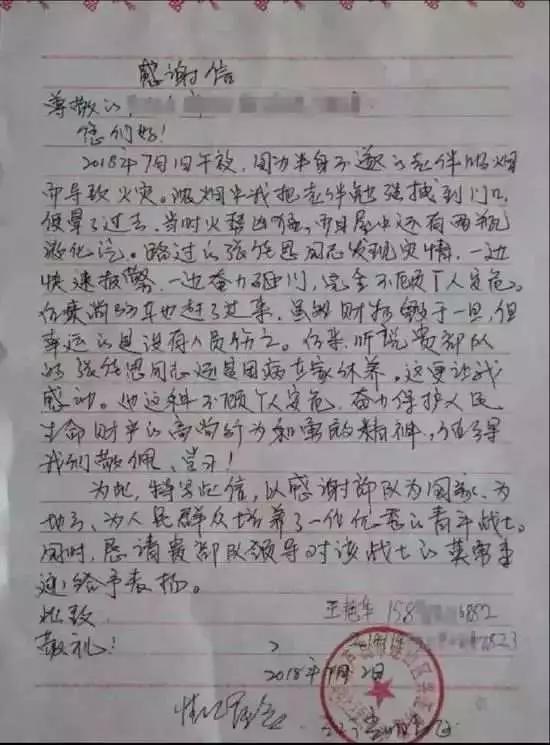 感谢信
尊敬的
您们好!
2018年7月1日午夜,因为半身不遂的老伴吸烟
而导致火灾。浓烟中我把老伴勉强拽到门口,
便晕了过去,当时火势凶猛,而且屋中还有两瓶
液化汽。路过的张能恩同志发现灾情,一边
快速报警,一边奋力砸门,完全不顾个人安危。
后来消防车也赶了过来,虽然财物毁于一旦,但
幸运的是没有人员伤亡。后来,听说贵部队
的张能恩同志还是因病在家休养。这更让我
感动。他这种不顾个人安危,奋力保护人民
生命财产的高尚行为和勇敢精神,值得
我们敬佩、学习!
为此,特写此信,以感谢部队为国家、为
地方、为人民群众培养了一位优秀的青年战士。
同时,恳请贵部队领导对该战士的英勇事
迹给予表扬。
此致
敬礼!
王艳华 158 6882
2823
2018年7月2日
情况属实